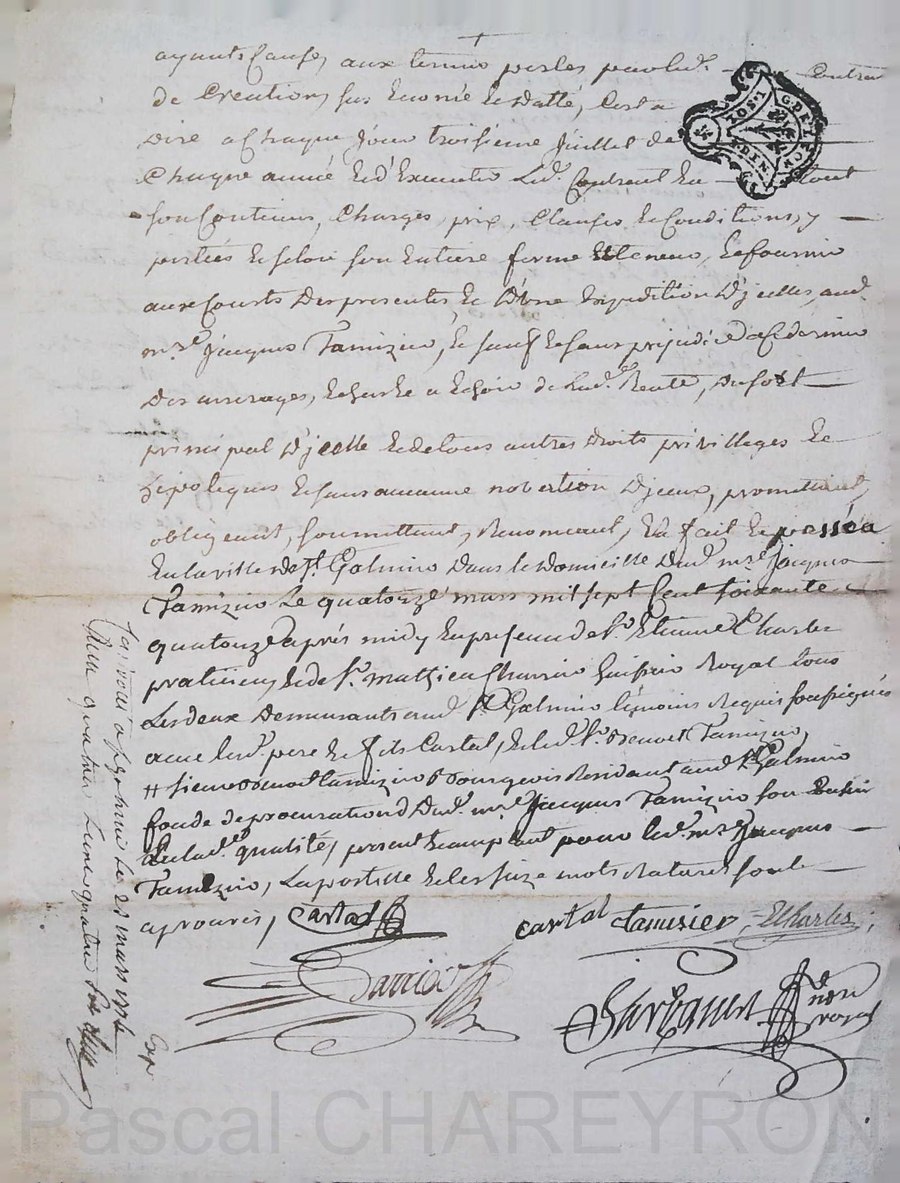 ayants Cause, aux termes portés par led. Contrat
de Creation, sus Enoncé Et datté, C'est a
Dire a Chaque Jour troisieme Juillet de
Chaque année Et d'Executer Led. Contract En tout
son Contenus, Charges, prix, Clauses Et Conditions, y
portées Et selon son Entiere forme Et teneur, Et fournir
aux Couts Des presentes Et D'une Expedition D'jcelles, aud.
mre. Jacques Tamizier, Et sauf Et sans prejudice a Ce dernier
Des arrerages, Echus Et a Echoir de Lad. Rente, Du sort
principal D'jcelle Et de tous autres Droits privilleges Et
hipoteques Et sans aucunne novation D'jceux, promettant,
obligeant, soumettant, Renonceant, Et a fait Et passé a
En la ville De St. Galmier Dans le Domicille Dud. mre. Jacques
Tamizier Le quatorze mars mil sept Cent soixante
quatorze après midy En presence de Sr. Etienne Charles
praticien, Et de Sr. Mathieu huissier Royal tous
Les deux Demeurants aud. St. Galmier temoins Requis soussignés
avec Led. pere Et fils Cartal, Et led. Sr. Benoit Tamizier,
# sieur Benoit Tamizier Bourgeois Residant aud. St. Galmier
fondé de procuration Dud. mre. Jacques Tamizier son
En lad. qualité, present Et acceptant pour led. mre. Jacques
Tamizier, La postille Et les seize mots Raturés sont
aprouvés,
Cartal
cartal tamisier EtCharles
Barrieu
not. royal
a St Galmier Le 23 mars 1774
Reçu quatre Livres quatre
Exp
GDEL
Pascal CHAREYRON